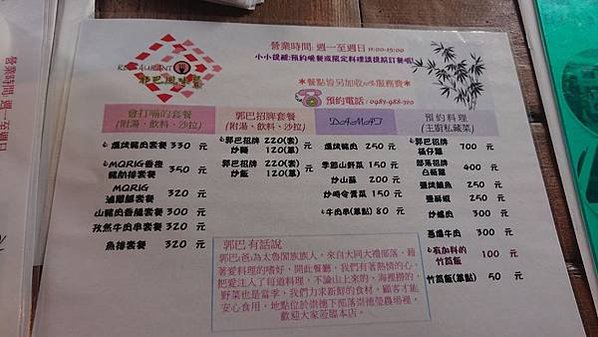 RESTAURANT
郭巴風味餐
營業時間: 週一至週日 11:00-15:00
小小提醒:預約晚餐或限定料理請提前訂餐喔!
*餐點皆另加收10%服務費*
預約電話: 0983-988-710
會打嗝的套餐
(附湯、飲料、沙拉)
燻烤豬肉套餐 330 元
MQRIG香橙
豬肋排套餐 350 元
MQRIG
滷豬腳套餐 320 元
山豬肉香腸套餐 300 元
孜然牛肉串套餐 320 元
魚排套餐 320 元
郭巴招牌套餐
(附湯、飲料、沙拉)
郭巴招牌 220(套) 元
炒麵 120(單)
郭巴招牌 220(套) 元
炒飯 120(單)
DAMAT
燻烤豬肉 250 元
季節山野菜 150 元
炒山蘇 200 元
炒時令青菜 150 元
牛肉串(單點) 80 元
預約料理
(主廚私藏菜)
郭巴招牌 700 元
部落招牌 400 元
鹽烤鯛魚 250 元
鹽酥蝦 250 元
炒螺肉 300 元
蔥爆牛肉 300 元
有加料的
竹筒飯 100 元
竹筒飯(單點) 50 元
郭巴 有話說
郭巴(爸)為太魯閣族族人,來自大同大禮部落,藉
著愛料理的嗜好,開此餐廳,我們有著熱情的心,
把愛注入了每道料理,不論山上來的,海裡撈的,
野菜也是當季,我們力求新鮮的食材,顧客才能
安心食用,地點位於崇德下部落崇德瑩農場裡,
歡迎大家蒞臨本店。